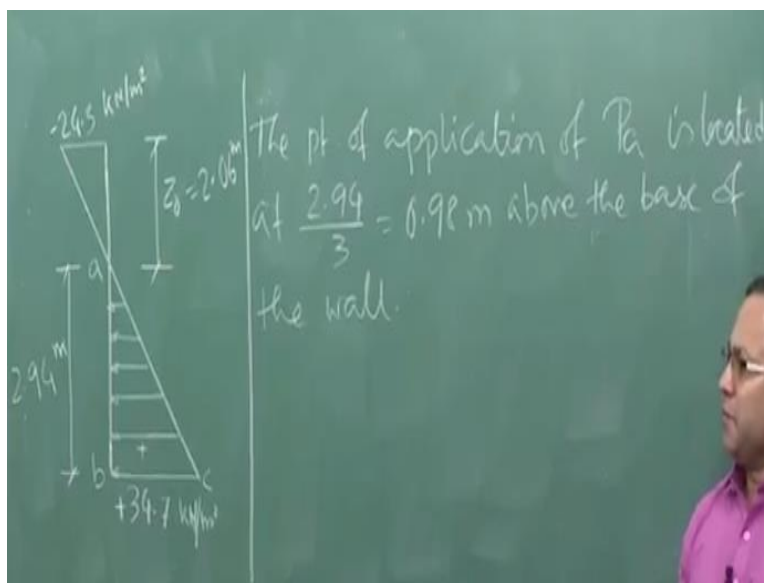 -24.5 kN/m²
z₀ = 2.06 m
a
2.94 m
b
+
c
+34.7 kN/m²
The pt of application of Pa is located
at 2.94/3 = 0.98 m above the base of
the wall.